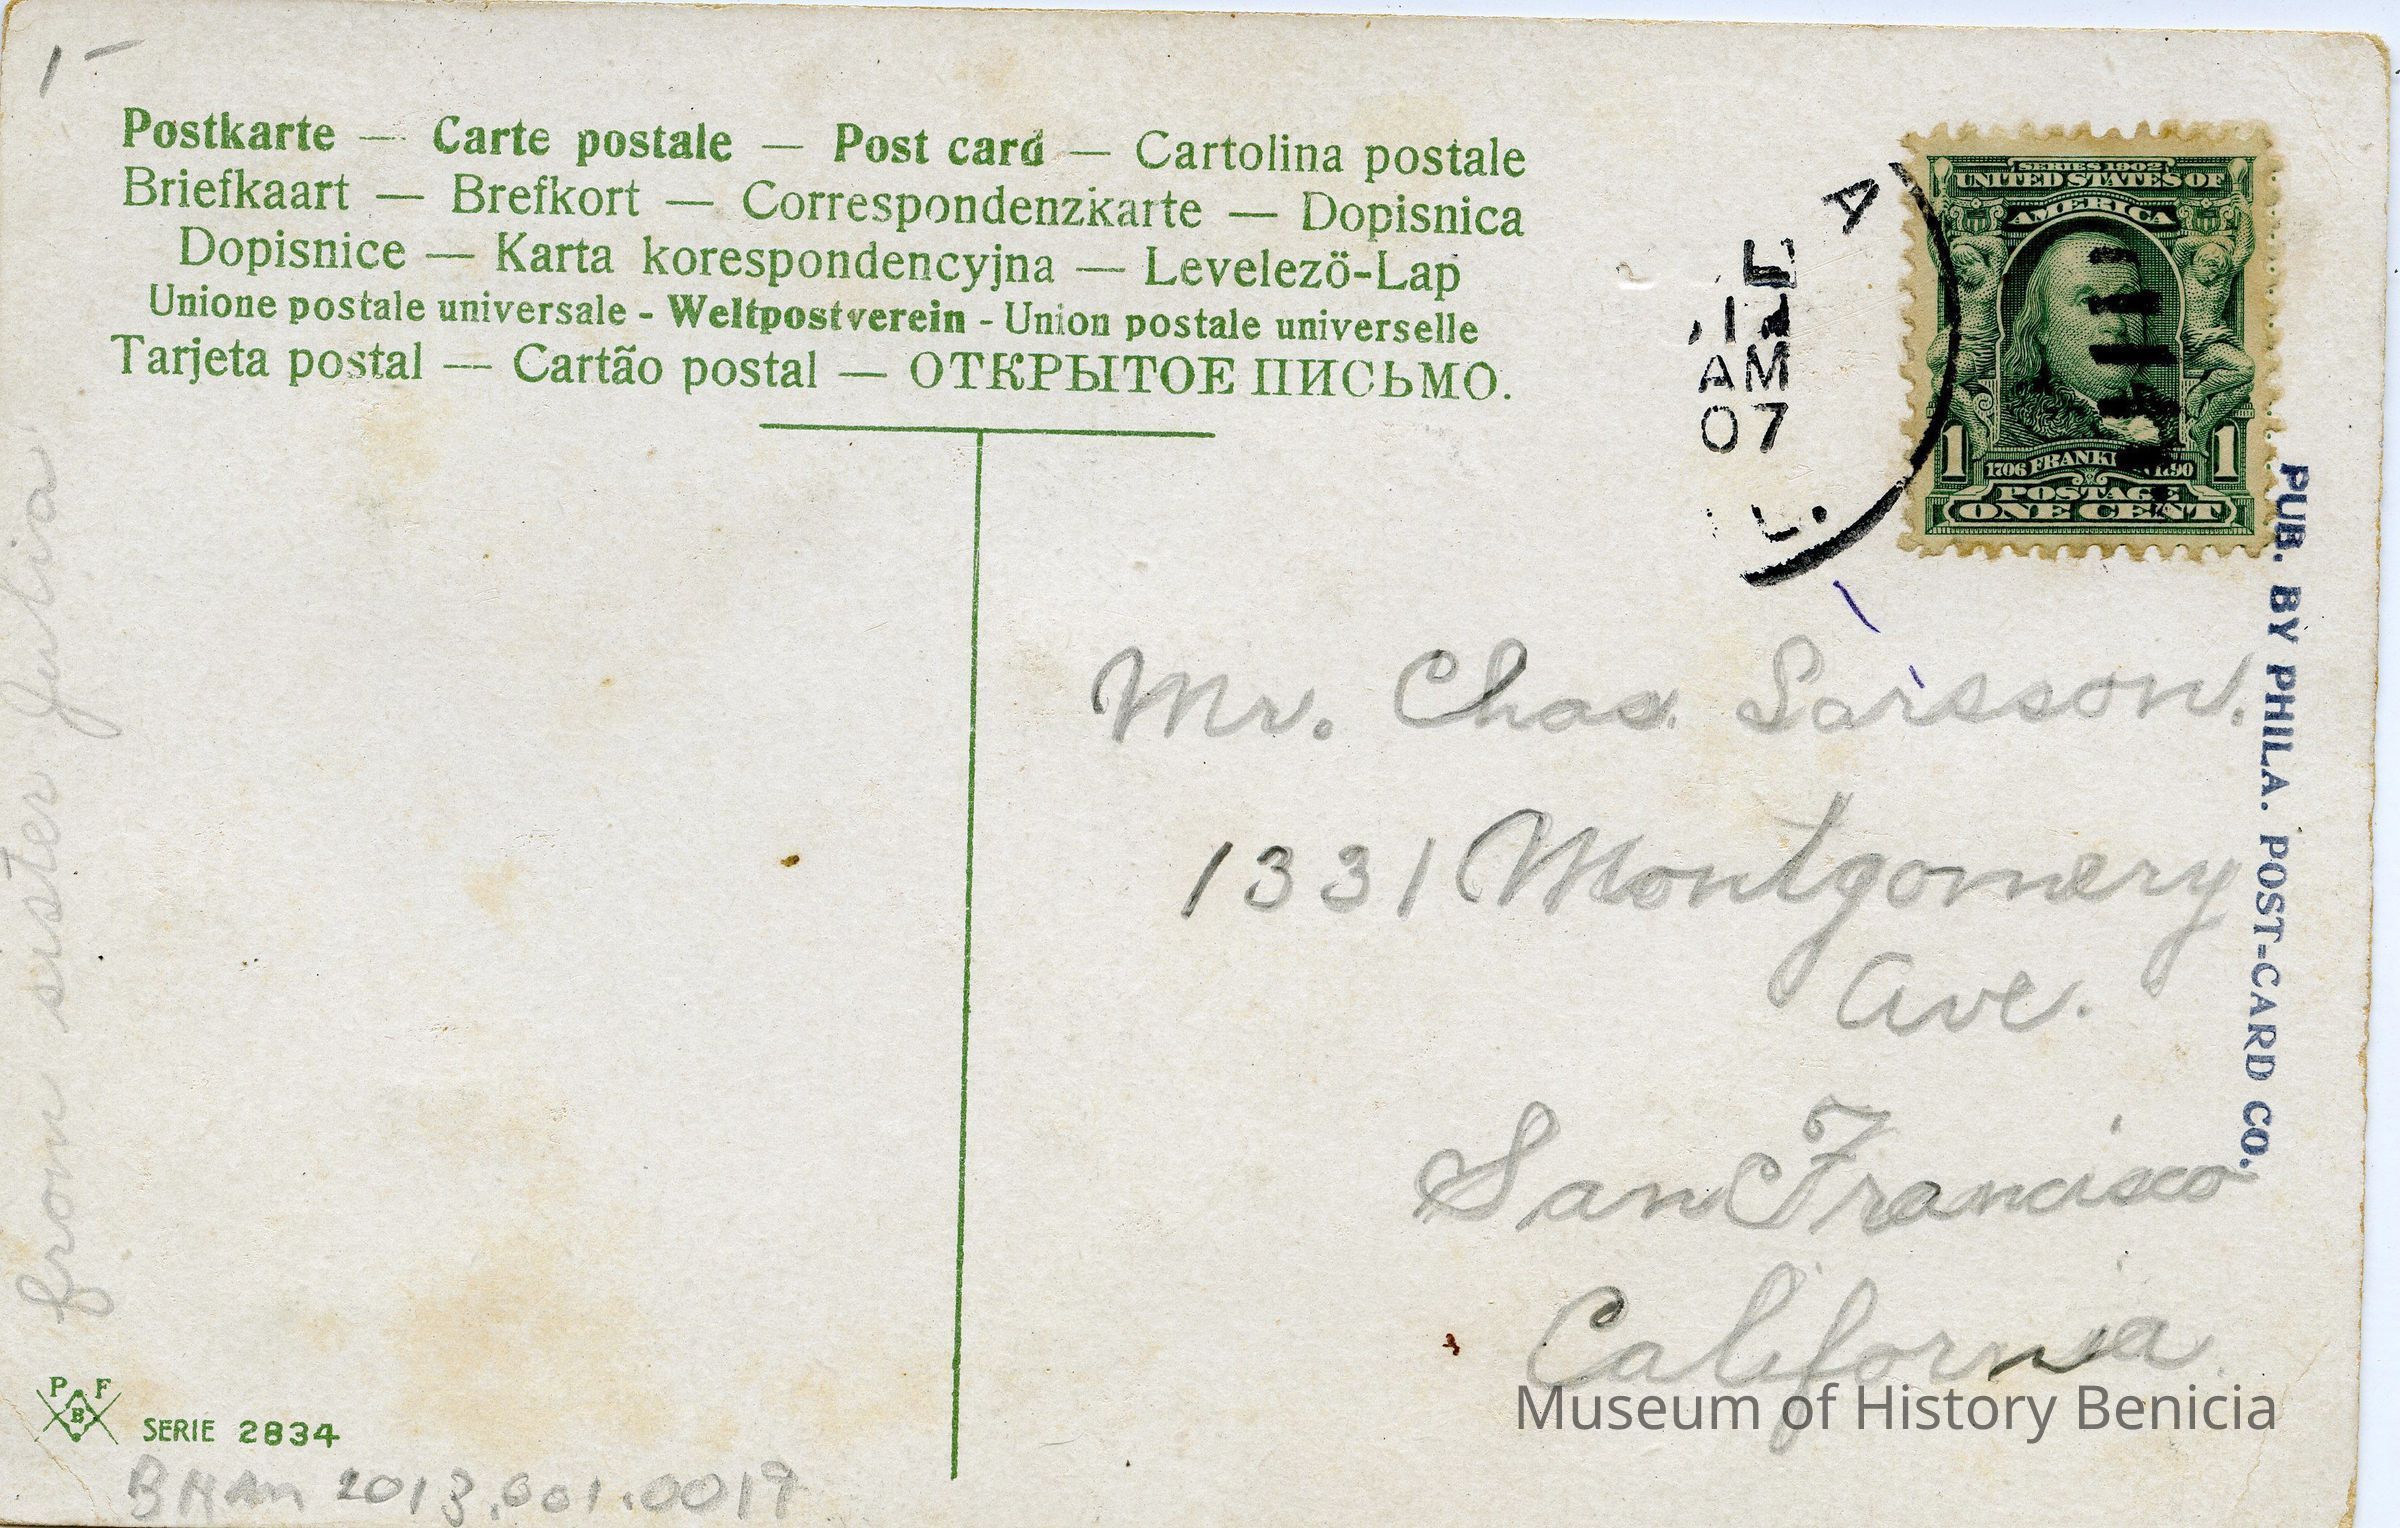 1 –
Postkarte — Carte postale — Post card — Cartolina postale
Briefkaart — Brefkort — Correspondenzkarte — Dopisnica
Dopisnice — Karta korespondencyjna — Levelező-Lap
Unione postale universale - Weltpostverein - Union postale universelle
Tarjeta postal — Cartão postal — ОТКРЫТОЕ ПИСЬМО.
A
AM
07
L.
SERIES 1902
UNITED STATES OF
AMERICA
1 1706 FRANKLIN 1790 1
POSTAGE
ONE CENT
PUB. BY PHILA. POST-CARD CO.
Mr. Chas. Larsson.
1331 Montgomery
Ave.
San Francisco
California.
from sister Julia
P F
B
SERIE 2834
2013.001.0019
Museum of History Benicia